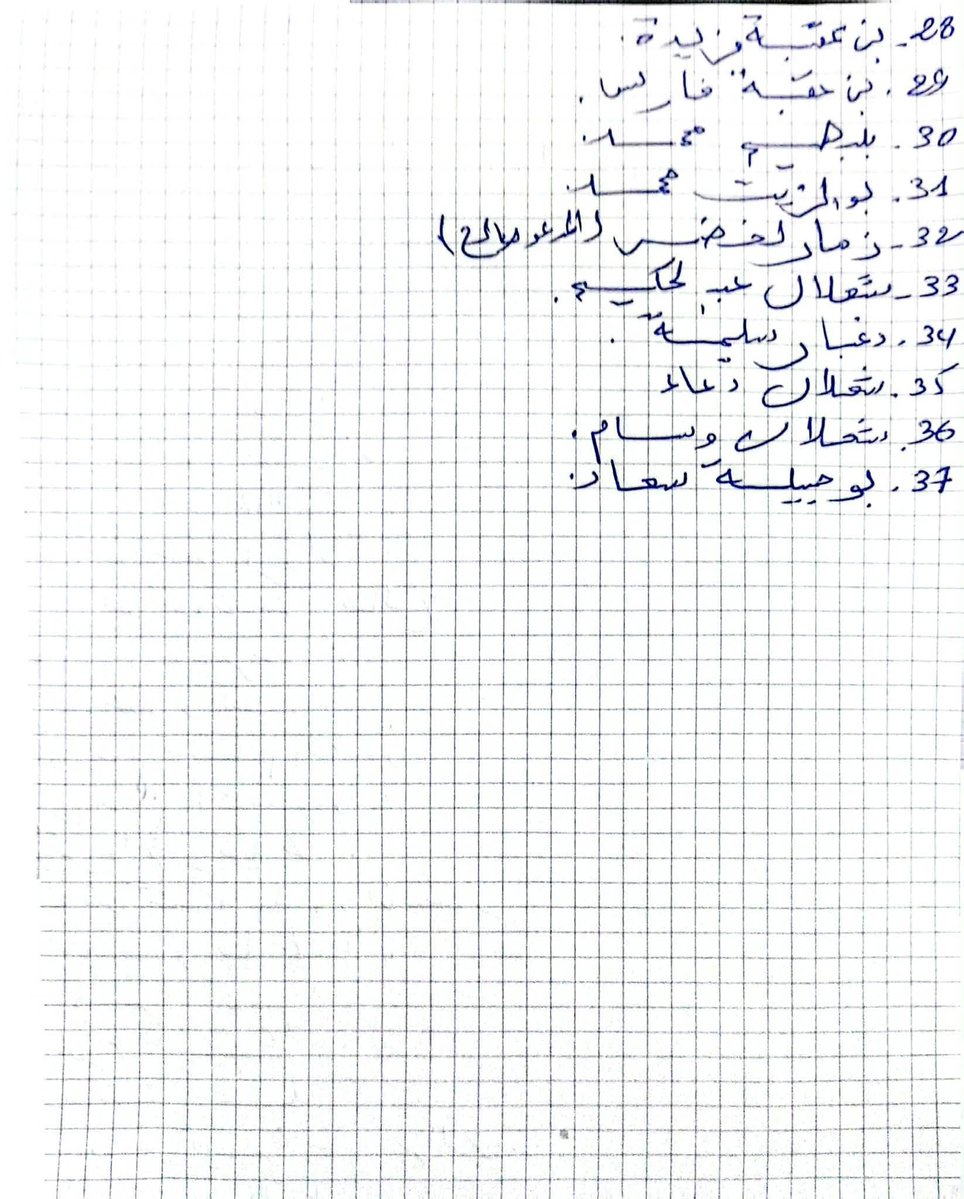 28- بن عقبة فريدة.
29. بن عقبة فارس.
30. بلدهيم محمد.
31. بوالزيت محمد.
32- زمار لخضر (المدعو صالح)
33- شعلال عبد الحكيم.
34. دغبار سليمة.
35. شعلال دعاء
36. شعلال وسام.
37. سعاد.